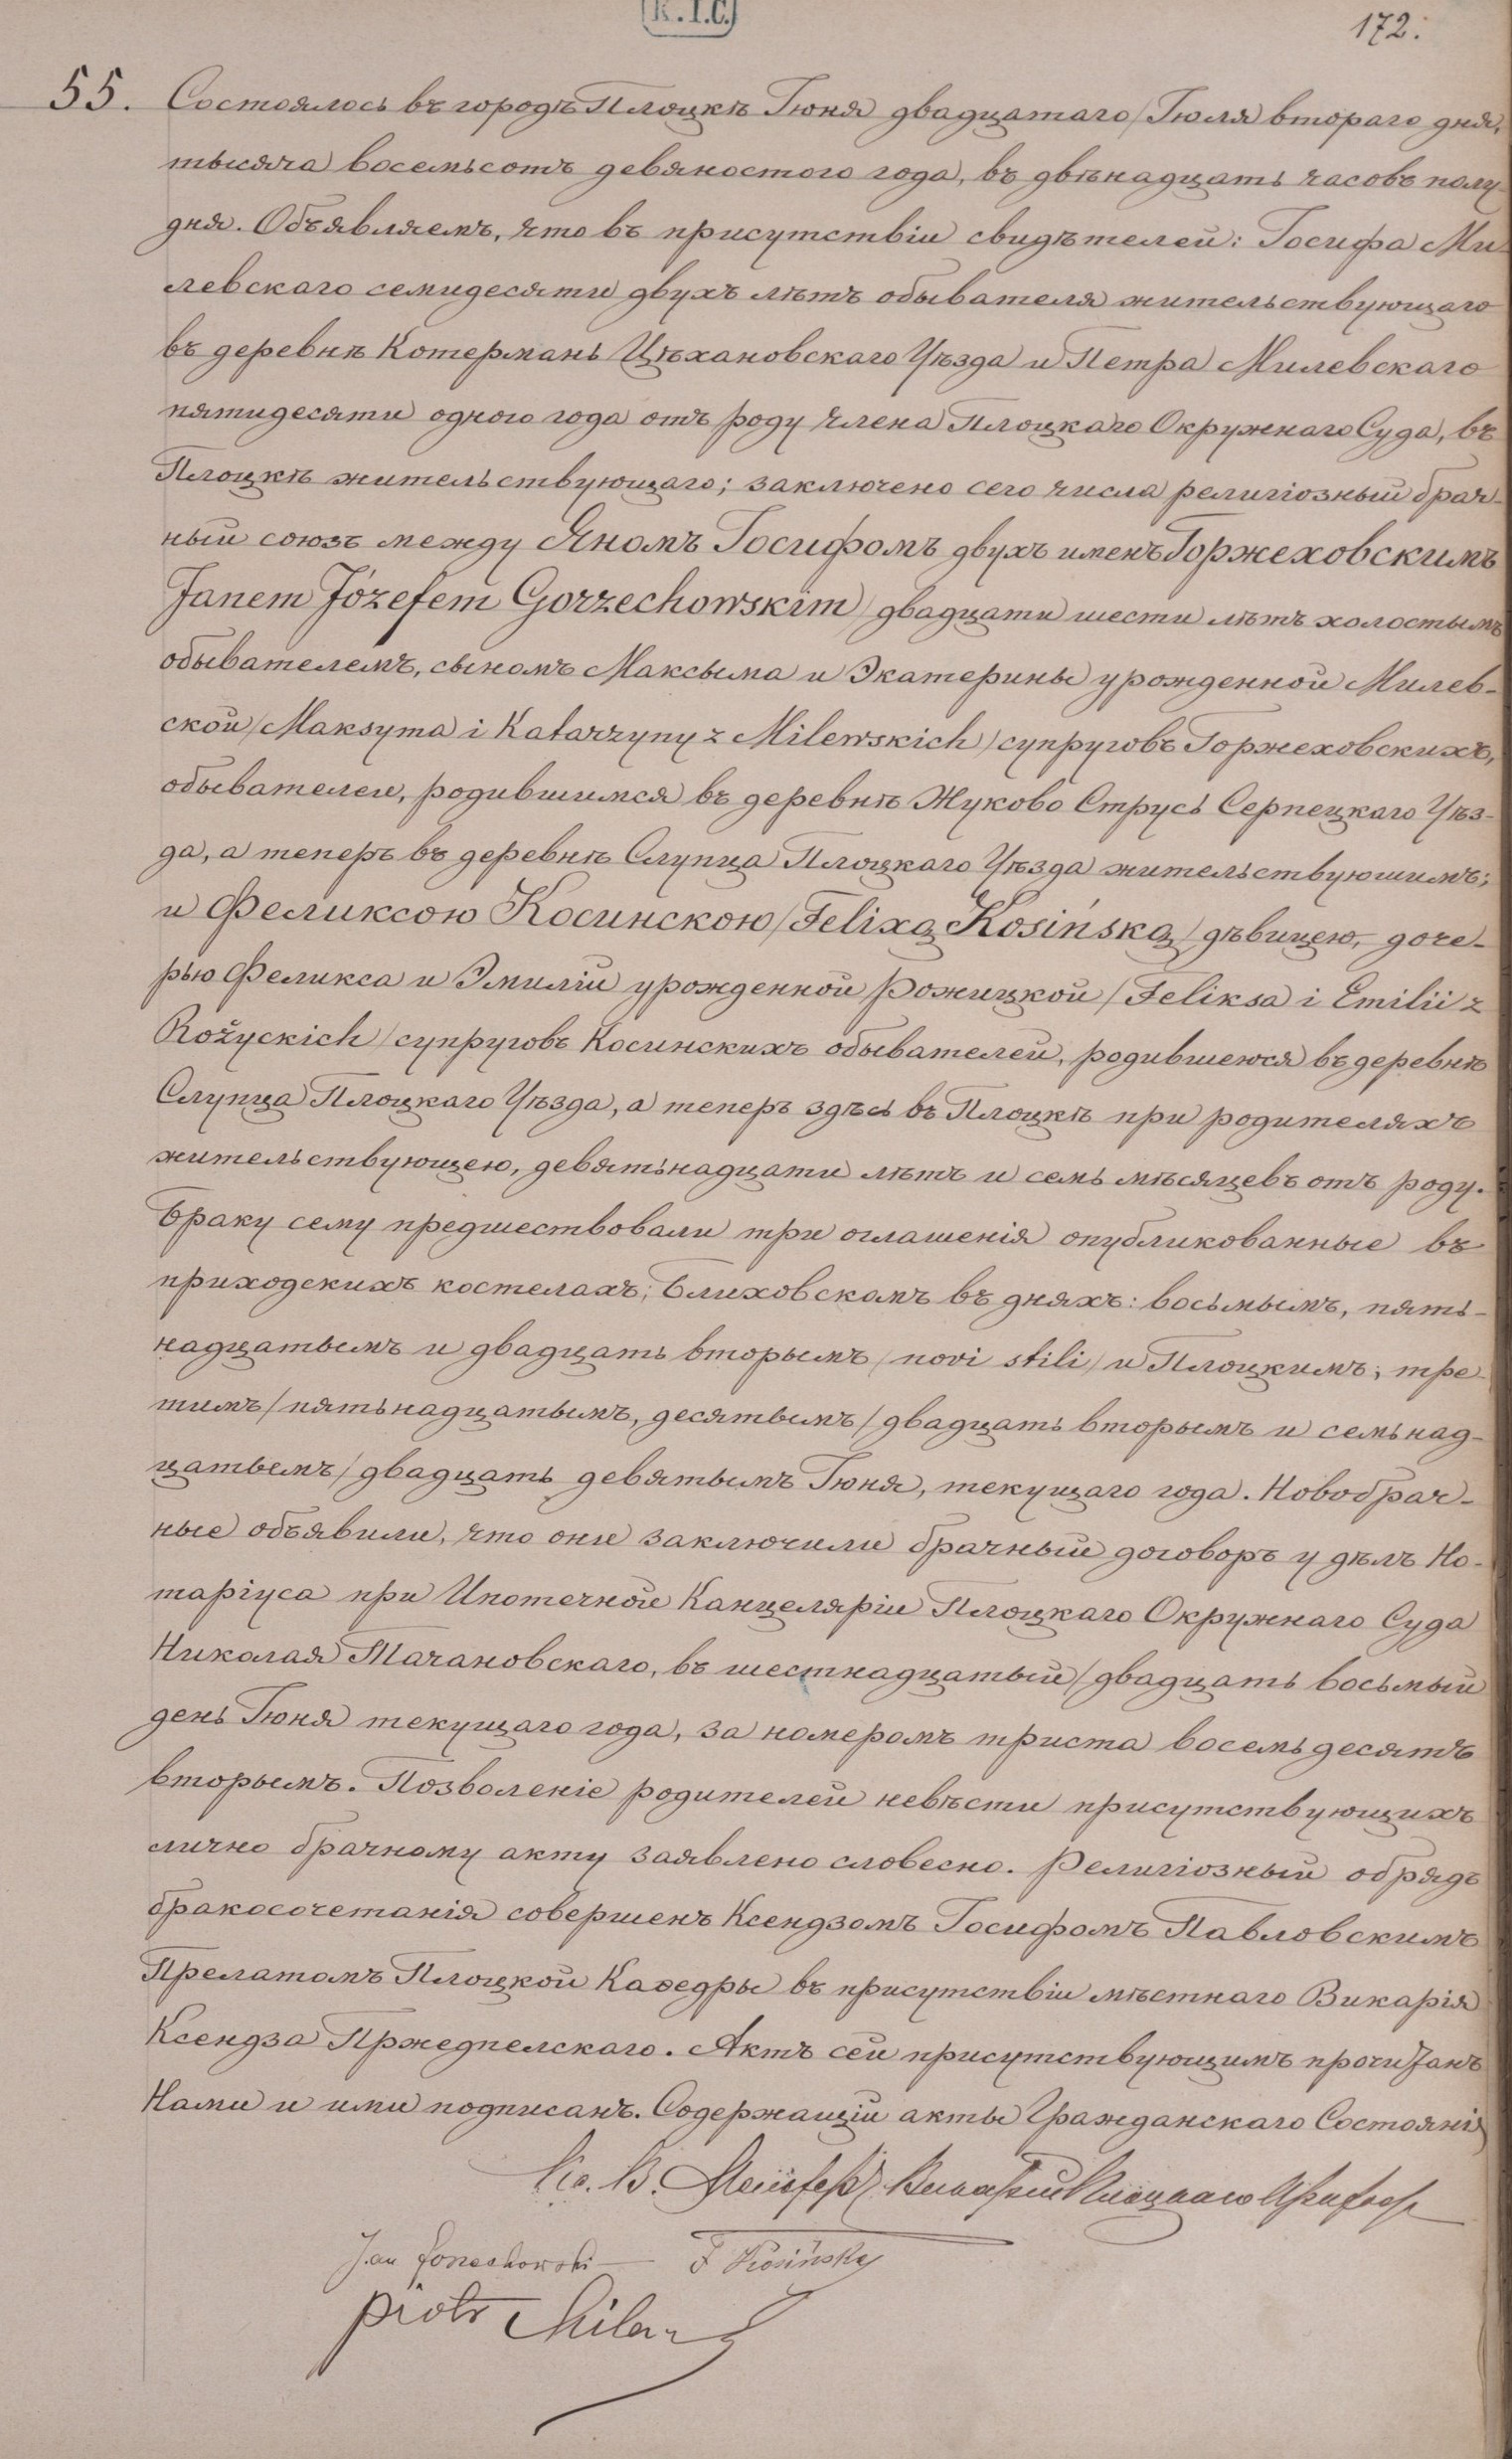 (K.I.C.)
172.
55. Состоялось въ городѣ Плоцкѣ Іюня двадцатаго/Іюля втораго дня,
тысяча восемьсотъ девяностого года, въ двѣнадцать часовъ полу-
дня. Объявляемъ, что въ присутствіи свидѣтелей: Іосифа Ми-
левскаго семидесяти двухъ лѣтъ обывателя жительствующаго
въ деревнѣ Котермань Цѣхановскаго Уѣзда и Петра Милевскаго
пятидесяти одного года отъ роду члена Плоцкаго Окружнаго Суда, въ
Плоцкѣ жительствующаго; заключено сего числа религіозный брач-
ный союзъ между Яномъ Іосифомъ двухъ именъ Горжеховскимъ
Janem Józefem Gorzechowskim/ двадцати шести лѣтъ холостымъ
обывателемъ, сыномъ Максыма и Экатерины урожденной Милев-
ской/Maksyma i Katarzyny z Milewskich/супруговъ Горжеховскихъ,
обывателей, родившимся въ деревнѣ Жуково Струсь Серпецкаго Уѣз-
да, а теперъ въ деревнѣ Слупца Плоцкаго Уѣзда жительствуюшимъ;
и Феликсою Косинскою/Felixą Kosińską/дѣвицею, доче-
рью Феликса и Эмиліи урожденной Рожицкой/Feliksa i Emilii z
Rożyckich/супруговъ Косинскихъ обывателей, родившеюся въ деревнѣ
Слупца Плоцкаго Уѣзда, а теперъ здѣсь въ Плоцкѣ при родителяхъ
жительствующею, девятьнадцати лѣтъ и семь мѣсяцевъ отъ роду.
Браку сему предшествовали три оглашенія опубликованные въ
приходскихъ костелахъ; Блиховскомъ въ дняхъ: восьмымъ, пять-
надцатымъ и двадцать вторымъ/novi stili/и Плоцкимъ; тре-
тимъ/пятьнадцатымъ, десятымъ/двадцать вторымъ и семьнад-
цатымъ/двадцать девятымъ Іюня, текущаго года. Новобрач-
ные объявили, что они заключили брачный договоръ у дѣлъ Но-
таріуса при Ипотечной Канцеляріи Плоцкаго Окружнаго Суда
Николая Тачановскаго, въ шестнадцатый/двадцать восьмый
день Іюня текущаго года, за номеромъ триста восемьдесятъ
вторымъ. Позволеніе родителей невѣсти присутствующихъ
лично брачному акту заявлено словесно. Религіозный обрядъ
бракосочетанія совершенъ Ксендзомъ Іосифомъ Павловскимъ
Прелатомъ Плоцкой Каѳедры въ присутствіи мѣстнаго Викарія
Ксендза Пржедпелскаго. Актъ сей присутствующимъ прочитанъ
Нами и ими подписанъ. Содержащій акты Гражданскаго Состоянія
Кс. В. Викарій Плоцкаго Прихода
Jan Gorzechowski F Kosińska
Piotr Milewski